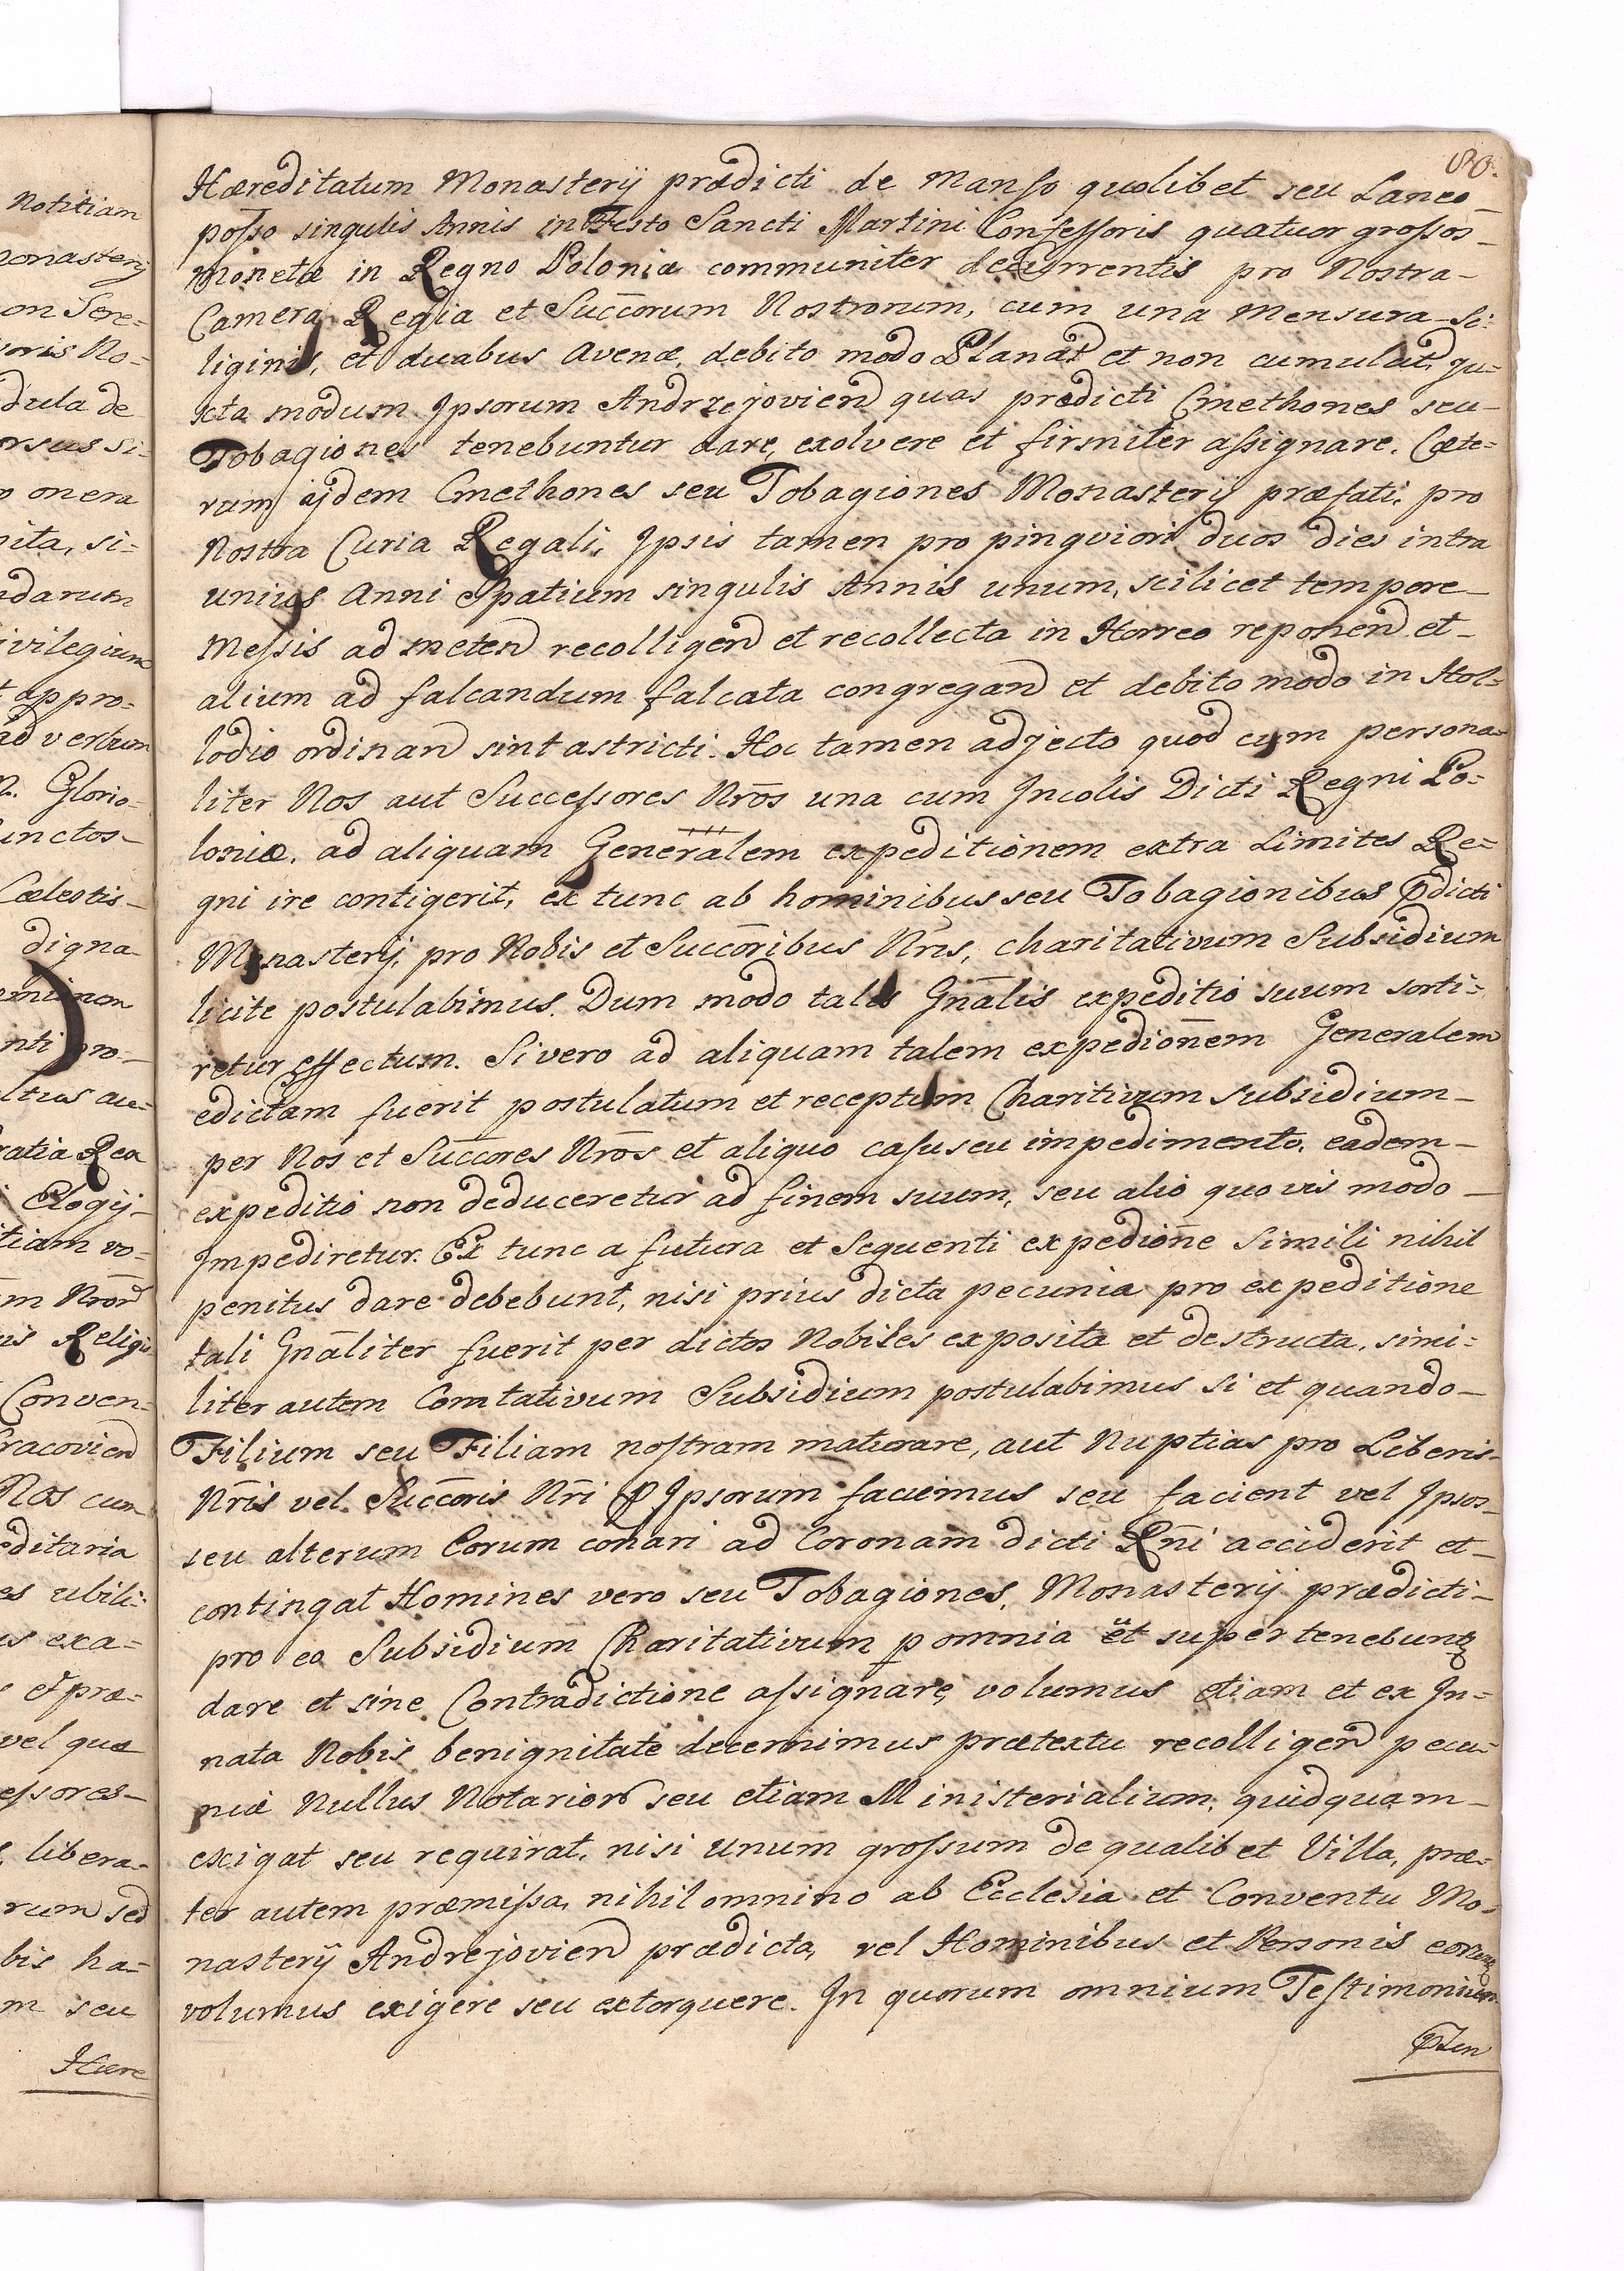 80.
Notitiam
Monasterij
on Sere=
voris No=
dula de
orsus si-
o onera
nita, si=
ndarum
ivilegium
t appro=
ad verbum
Glorio-
unctos-
Cælestis-
digna-
nti pro-
ltus au=
ratia Rex
Elogij-
itiam vo=
m Nrōrd
is Religi
Conven=
Cracoviend
Nos cum
editaria
es ubili-
us exa=
et præ=
vel quæ
essores-
liberа-
rum sed
bis ha-
m seu
Hære
Hæreditatum Monasterij prædicti de Manso quolibet seu Laneo-
posso singulis Annis in Festo Sancti Martini Confessoris quatuor grossos-
Monetæ in Regno Poloniæ communiter decurrentis pro Nostra-
Camera Regia et Succorum Nostrorum, cum una Mensura Si-
liginis, et duabus Avenæ, debito modo Planat et non cumulat, Ju-
xta modum Ipsorum Andrzejoviend quas prædicti Cmethones seu-
Tobagiones tenebuntur dare, exolvere et firmiter assignare. Cæte=
rum ijdem Cmethones seu Tobagiones Monasterij præfati, pro
Nostra Curia Regali, Ipsis tamen pro pingviori duos dies intra
unius Anni Spatium singulis Annis unum, scilicet tempore-
Messis ad metend recolligend et recollecta in Horreo reponend et-
alium ad falcandum falcata congregand et debito modo in Hol=
lodio ordinand sint astricti. Hoc tamen adjecto quod cum persona-
liter Nos aut Successores Nrōs una cum Incolis Dicti Regni Po-
loniæ, ad aliquam Generalem expeditionem extra Limites Re=
gni ire contigerit, ex tunc ab hominibus seu Tobagionibus Pdicti
Monasterij, pro Nobis et Succōribus Nrīs, charitativum Subsidium
licite postulabimus. Dum modo talis Gnālis expeditio suum sorti=
retur effectum. Si vero ad aliquam talem expediōnem Generalem
edictam fuerit postulatum et receptum Charitivum subsidium-
per Nos et Succōres Nrōs et aliquo casu seu impedimento, eadem-
expeditio non deduceretur ad finem suum, seu alio quovis modo-
Impediretur. Ex tunc a futura et Sequenti expediōne Simili nihil
penitus dare debebunt, nisi prius dicta pecunia pro expeditione
tali Gnāliter fuerit per dictos Nobiles exposita et destructa, simi=
liter autem Comtativum Subsidium postulabimus si et quando-
Filium seu Filiam nostram maturare, aut Nuptias pro Liberis-
Nrīs vel Succōris Nrī P Ipsorum faciemus seu facient vel Ipsos-
seu alterum Eorum conari ad Coronam dicti Rñi acciderit et-
contingat Homines vero seu Tobagiones, Monasterij prædicti-
pro eo Subsidium Charitativum p omnia et super tenebuntz
dare et sine Contradictione assignare, volumus etiam et ex In=
nata Nobis benignitate decernimus prætextu recolligend pecu-
niæ Nullus Notarior seu etiam Ministerialium, quidquam-
exigat seu requirat, nisi unum grossum de qualibet Villa, præ-
ter autem præmissa, nihil omnino ab Ecclesia et Conventu Mo-
nasterij Andrejoviend prædicto, vel Hominibus et Personis eorum
volumus exigere seu extorquere. In quorum omnium Testimonium
PZen